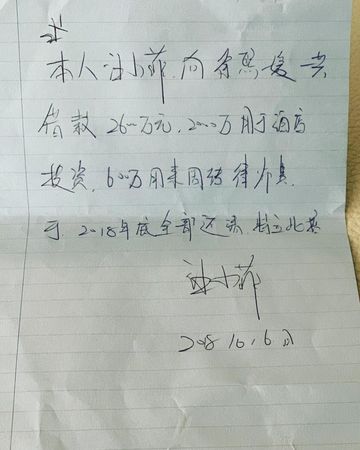 本人汪小菲向共
借款2600万元,2000万用于酒店
投资,600万用来周转
于2018年底全部还清.特立此据
汪小菲
2018 10.6日